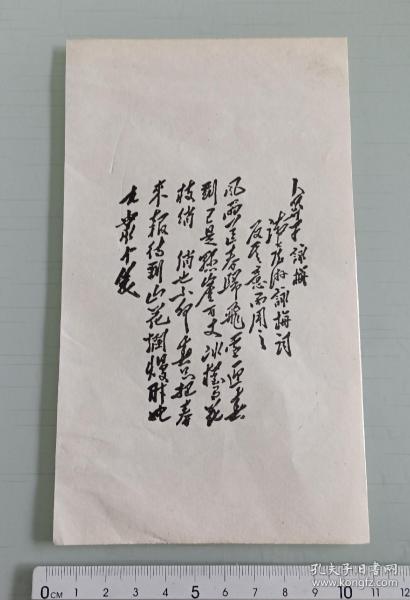 卜算子 詠梅
讀陸游詠梅詞
反其意而用之
風雨送春歸飛雪迎春
到已是懸崖百丈冰猶有花
枝俏 俏也不爭春只把春
來報待到山花爛熳時她
在叢中笑
孔夫子旧书网
0CM 1 2 3 4 5 6 7 8 9 10 11 12